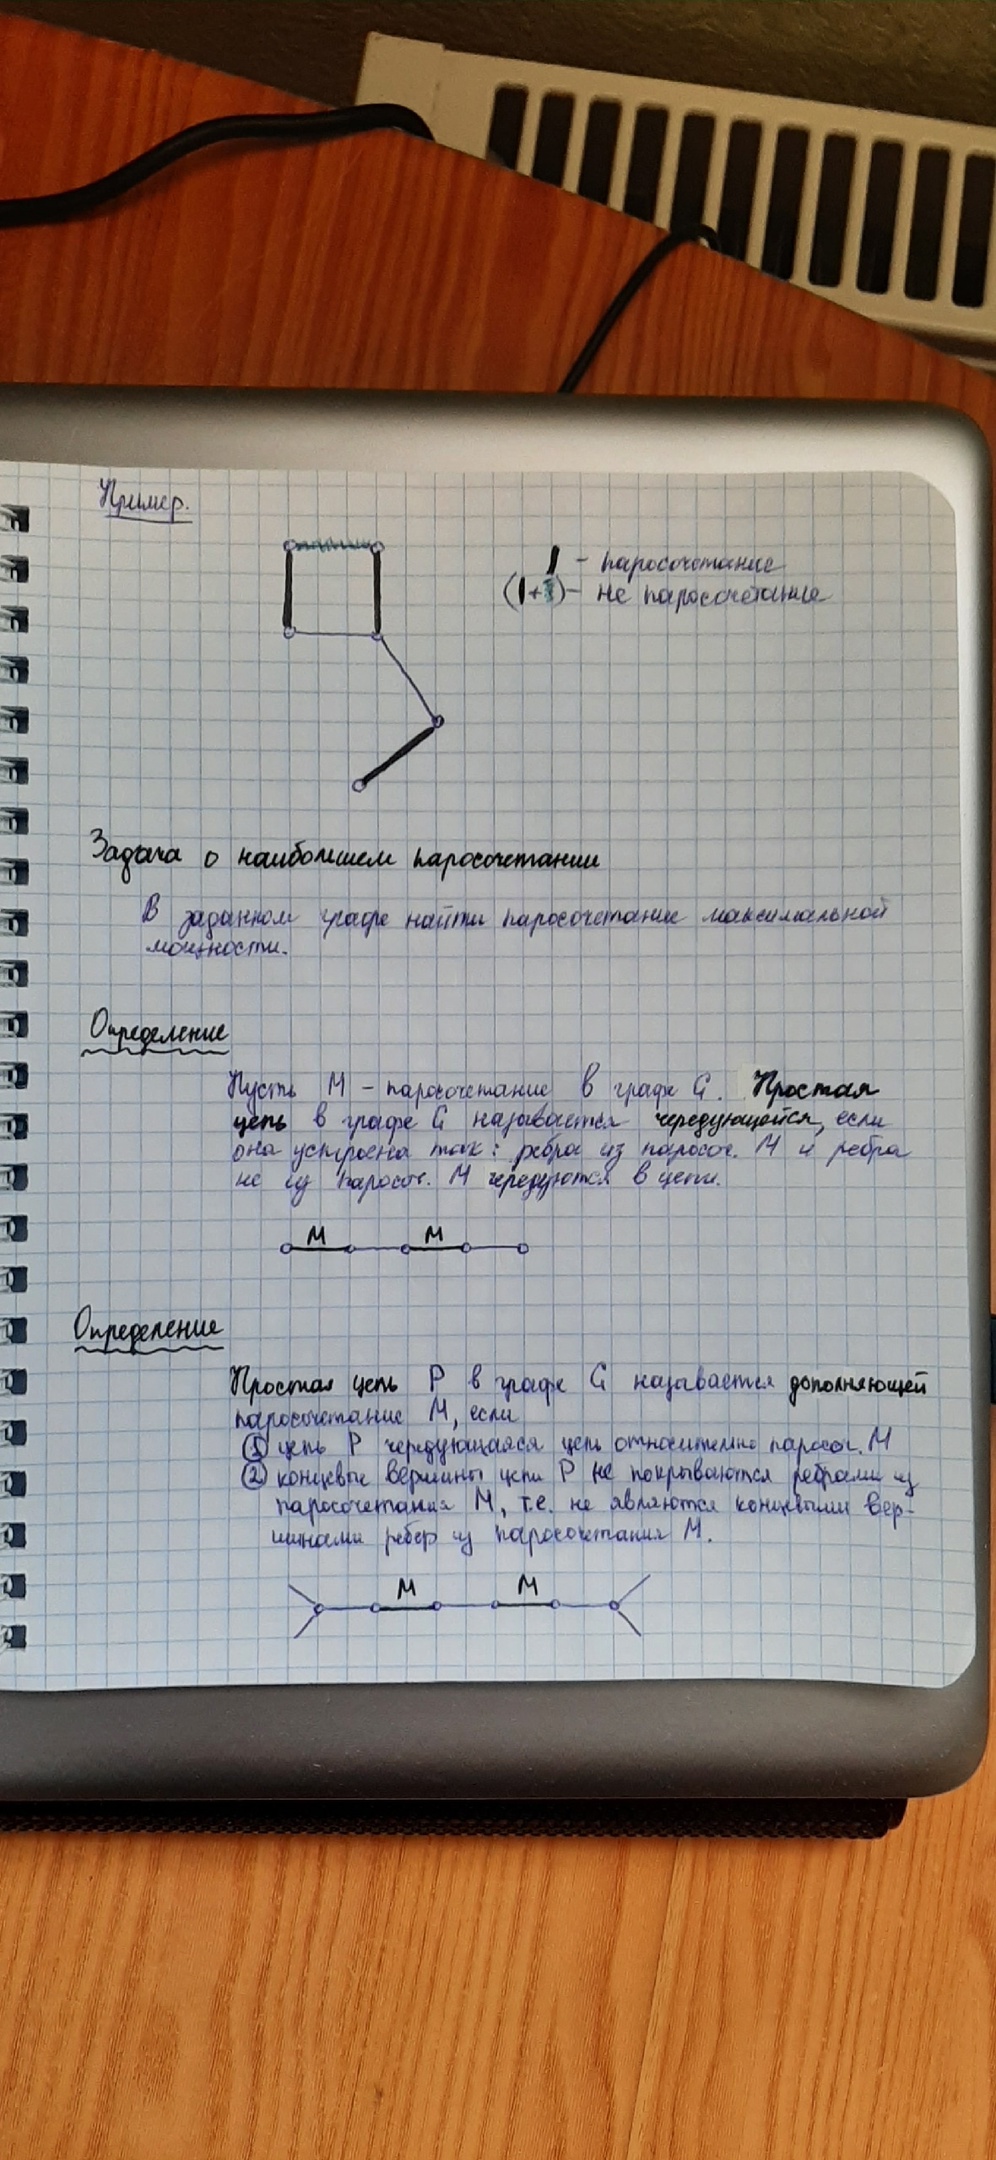 Пример.
- паросочетание
(1+1) - не паросочетание
Задача о наибольшем паросочетании
В заданном графе найти паросочетание максимальной
мощности.
Определение
Пусть M - паросочетание в графе G. Простая
цепь в графе G называется чередующейся, если
она устроена так: ребра из паросоч. M и ребра
не из паросоч. M чередуются в цепи.
M M
Определение
Простая цепь P в графе G называется дополняющей
паросочетание M, если
① цепь P чередующаяся цепь относительно паросоч. M
② концевые вершины цепи P не покрываются ребрами из
паросочетания M, т.е. не являются концевыми вер-
шинами ребер из паросочетания M.
M M